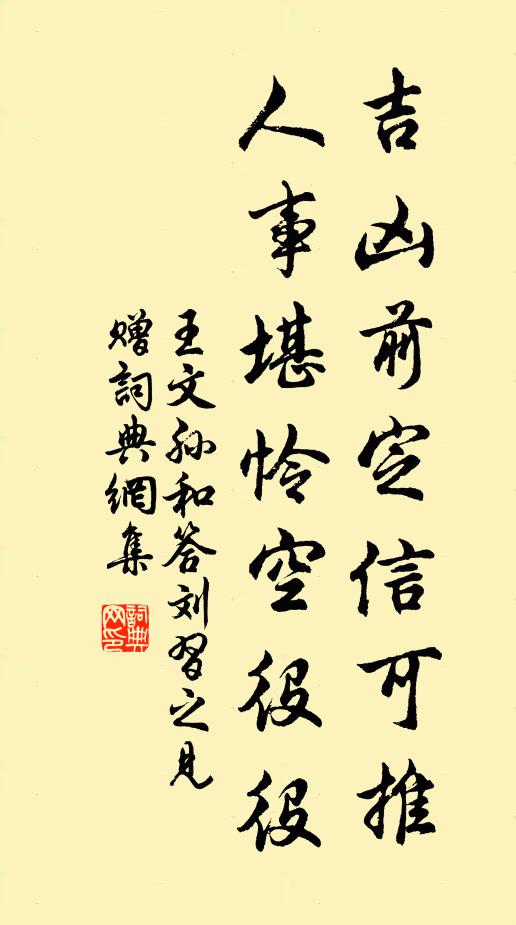 吉凶前定信可推
人事堪怜空役役
王文孙和答刘習之見
赠詞典網集
詞典网印